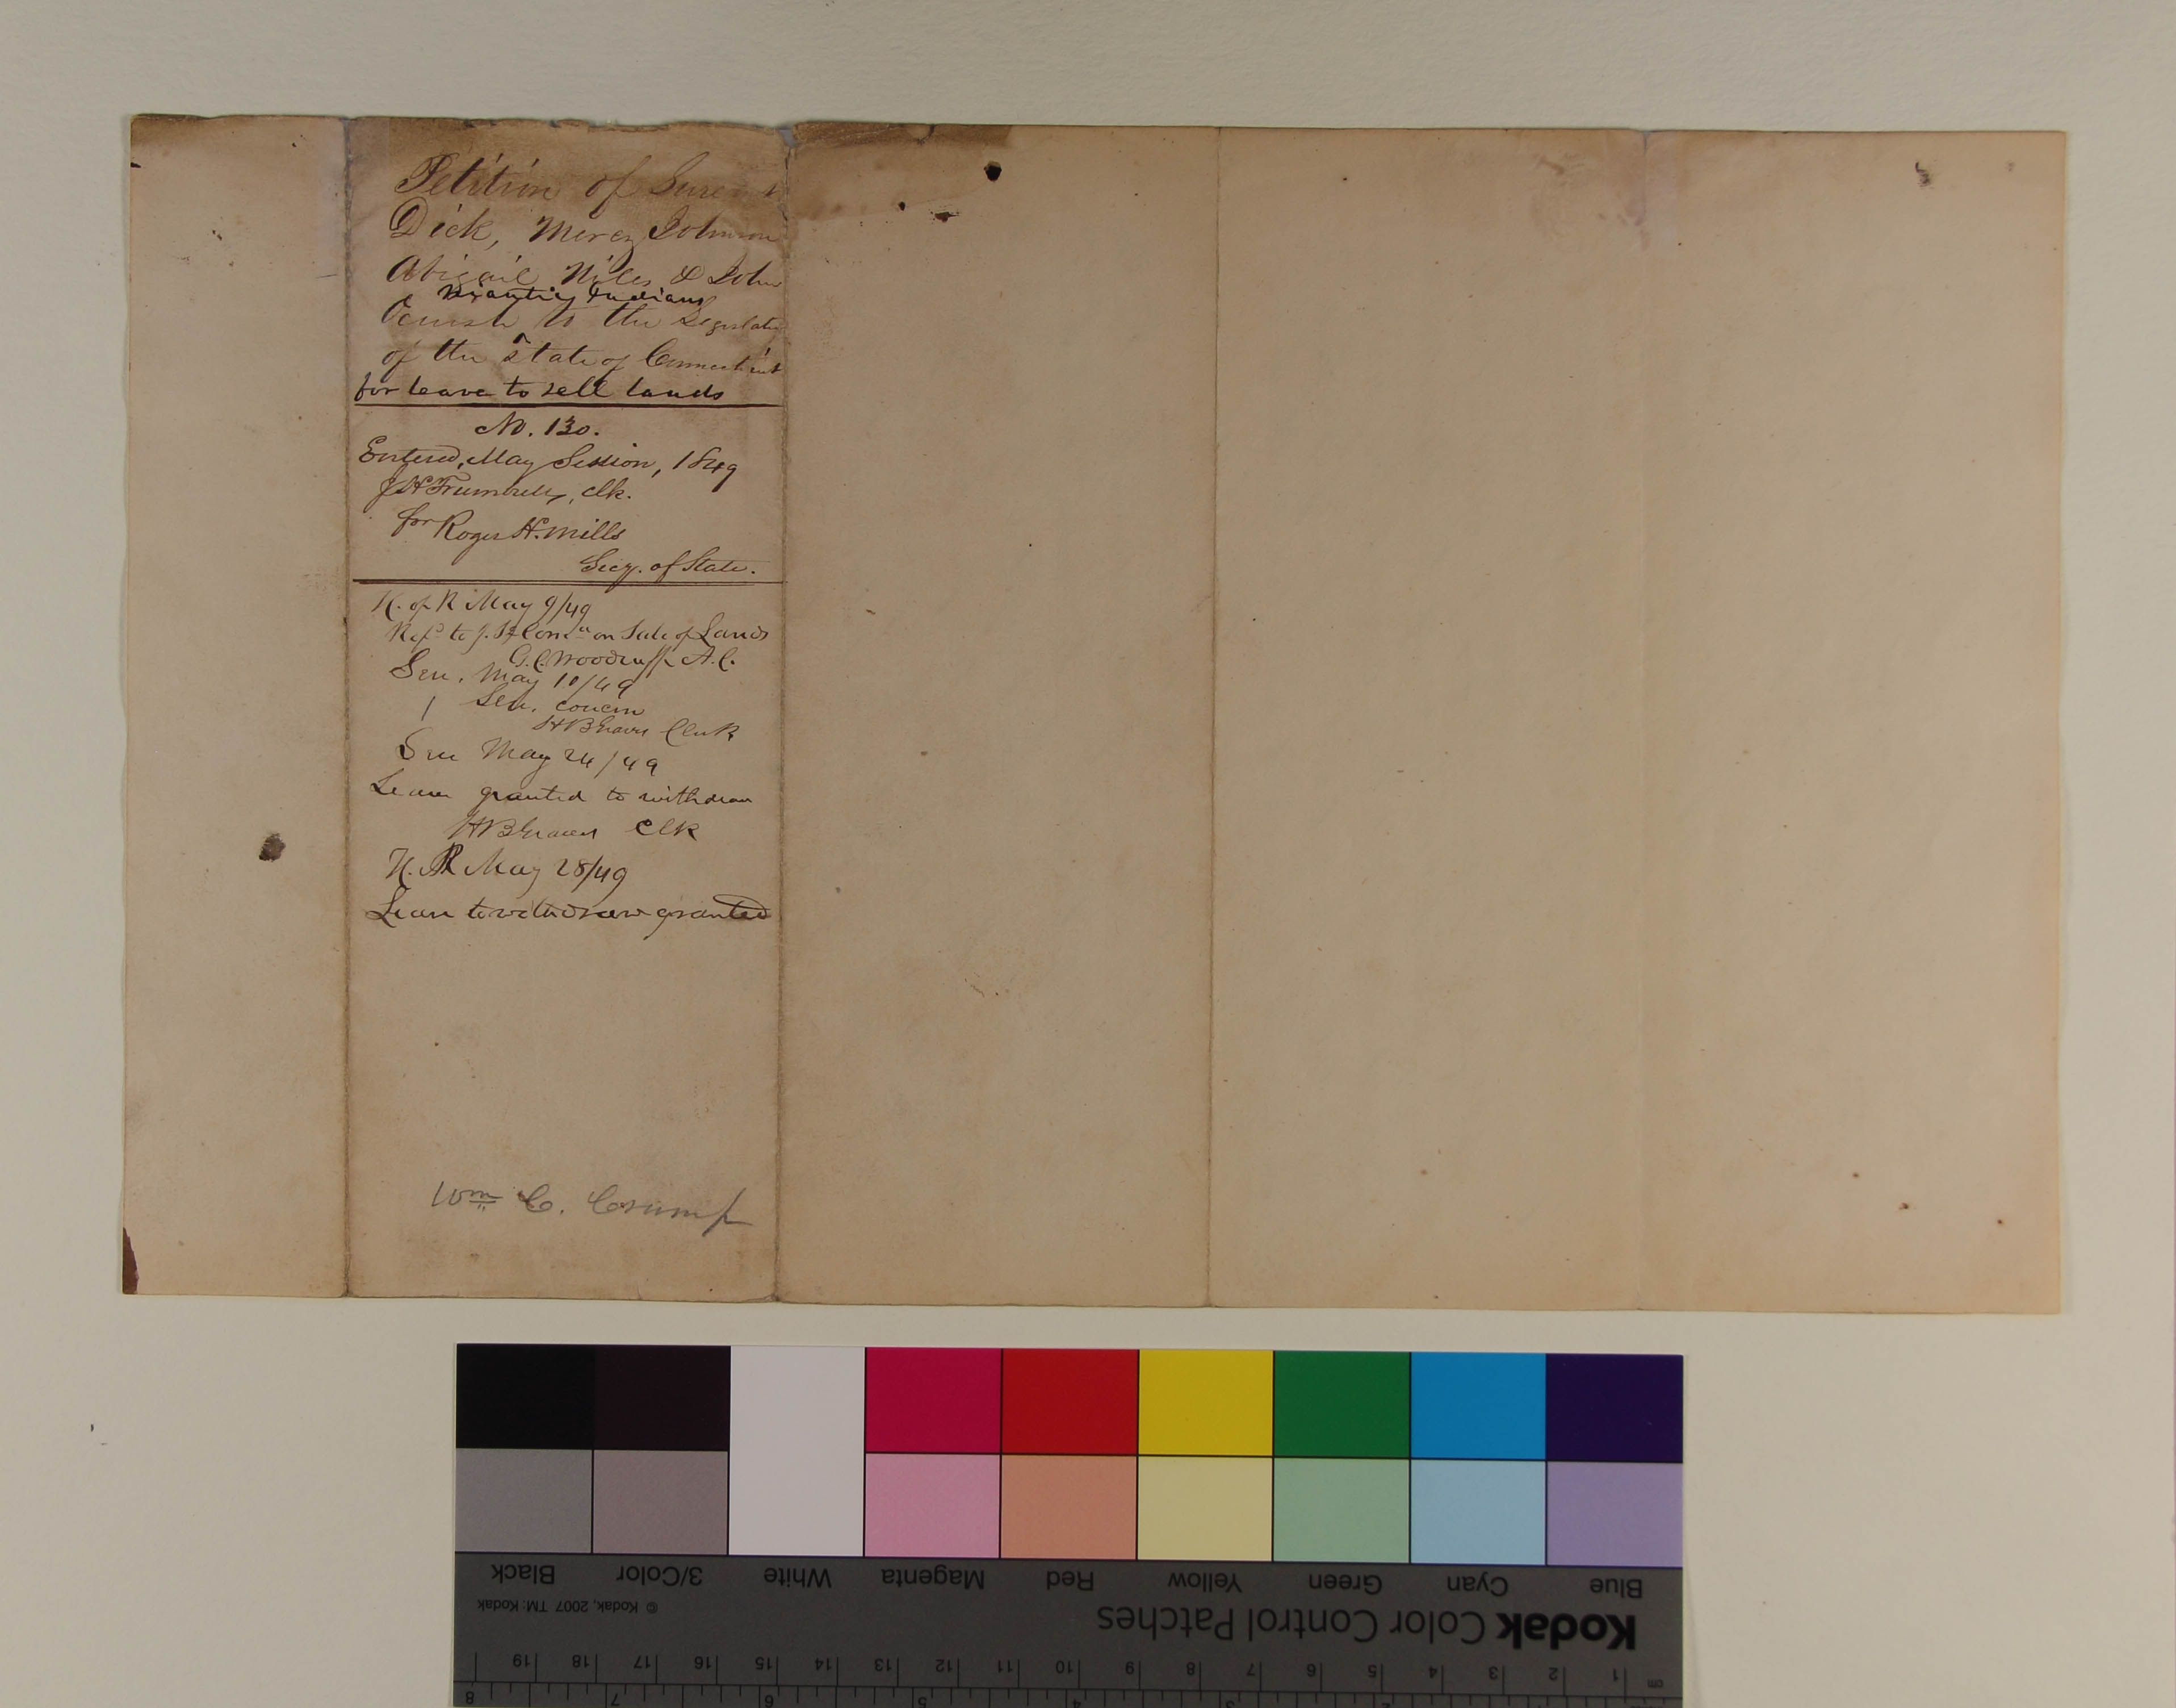 Petition of
Dick, Mercy Johnson
Abigail Niles & John
Niantic Indians
Ocuish to the Legislatu
of the State of Connecticut
for leave to sell lands
No. 130.
Entered, May Session, 1849
J H Trumbull, Clk.
for Roger H. Mills
Secy. of State.
H. of R May 9/49
Ref.d to J. St Comee on Sale of Lands
G. C. Woodruff A. C.
Sen. May 10/49
Sen. concur
H B Graves Clerk
Sen May 24/49
Leave granted to withdraw
H B Graves Clk
H. R May 28/49
Leave to withdraw granted
Wm C. Crump
Black 3/Color White Magenta Red Yellow Green Cyan Blue
© Kodak, 2007 TM: Kodak
Kodak Color Control Patches
cm 1 2 3 4 5 6 7 8 9 10 11 12 13 14 15 16 17 18 19